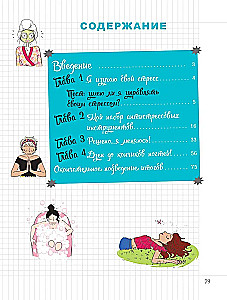 СОДЕРЖАНИЕ
Введение 3
Глава 1 Я изучаю свой стресс 4
Тест: умею ли я управлять
своим стрессом?
Глава 2 Мой набор антистрессовых
инструментов 18
Глава 3 Решено, я меняюсь! 38
Глава 4 Дзен до кончиков ногтей! 56
Окончательное подведение итогов 73
79